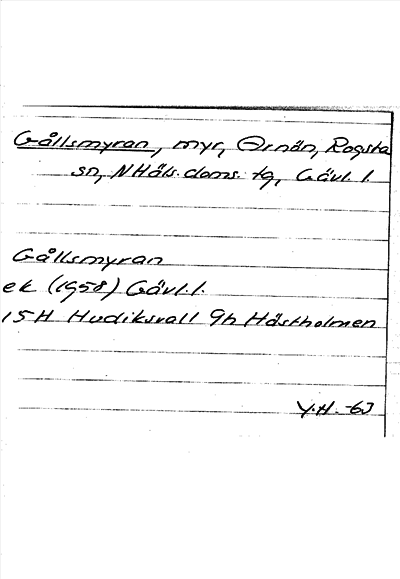 Gållsmyran, myr, Ornön, Rogsta
sn, NHäls. doms. tg, Gävl. l.
Gållsmyran
ek (1958) Gävl. l.
15H Hudiksvall 9h Hästholmen
Y.H. -63